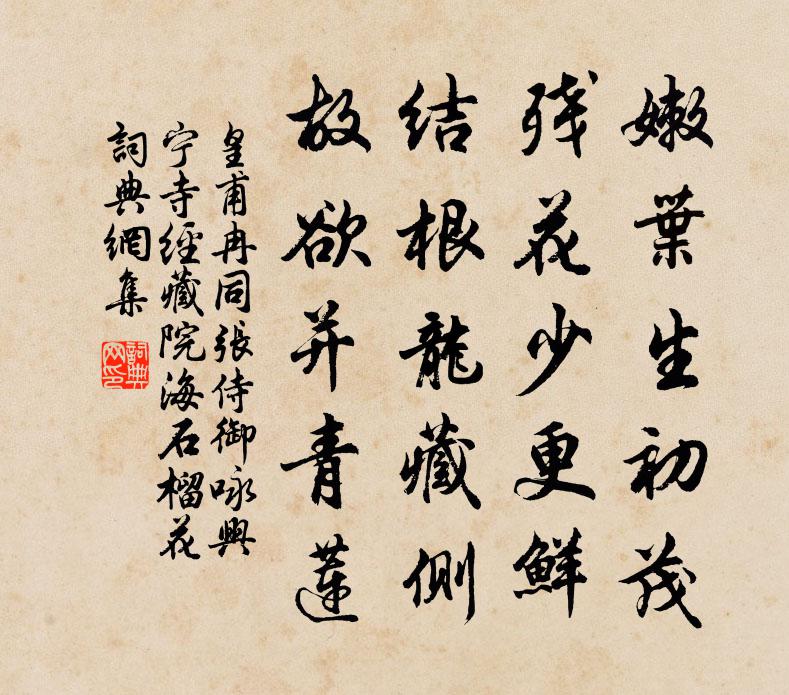 嫩葉生初茂
残花少更鮮
结根龍藏側
故欲并青蓮
皇甫冉同張侍御咏興
宁寺經藏院海石榴花
詞典網集
詞典網印